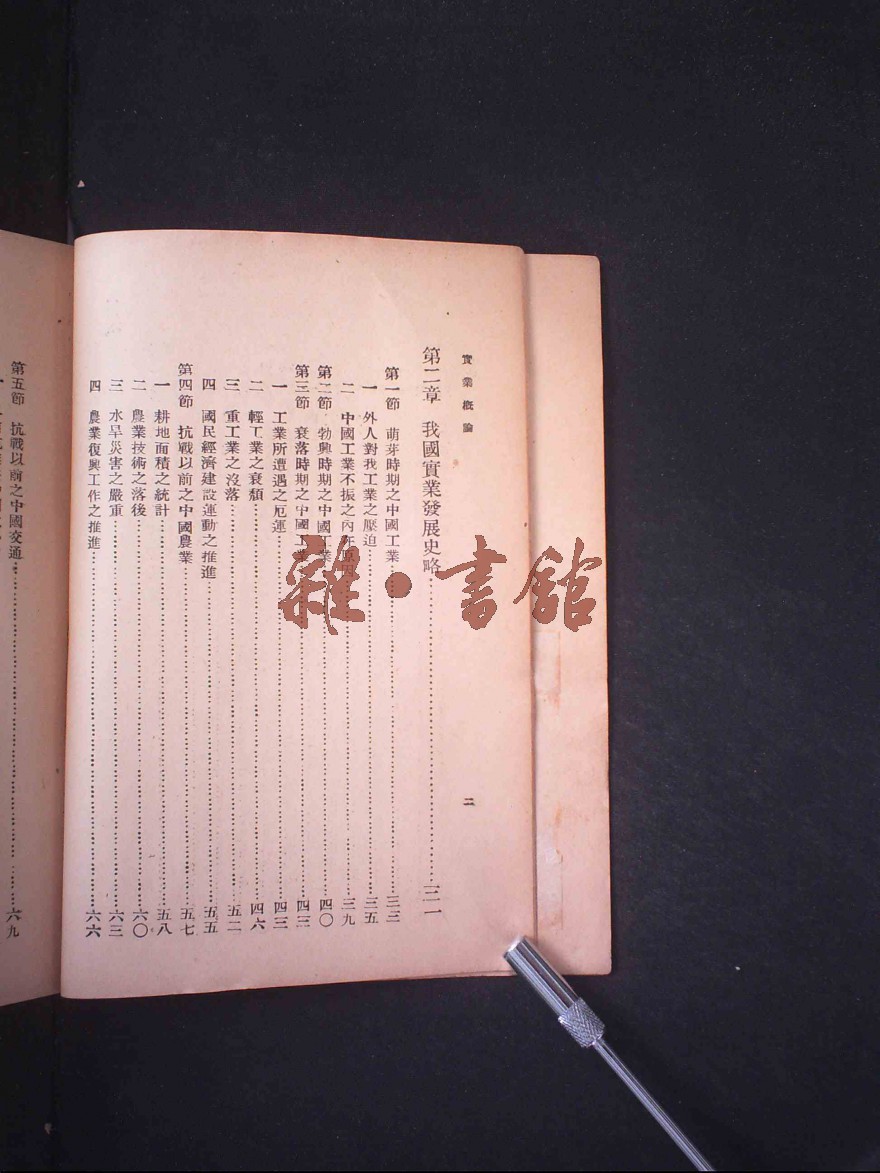 實業概論
二
第二章 我國實業發展史略……三一
第一節 萌芽時期之中國工業……三三
一 外人對我工業之壓迫……三五
二 中國工業不振之內在原因……三九
第二節 勃興時期之中國工業……四〇
第三節 衰落時期之中國工業……四三
一 工業所遭遇之厄運……四三
二 輕工業之衰頹……四六
三 重工業之沒落……五二
四 國民經濟建設運動之推進……五五
第四節 抗戰以前之中國農業……五七
一 耕地面積之統計……五八
二 農業技術之落後……六〇
三 水旱災害之嚴重……六三
四 農業復興工作之推進……六六
第五節 抗戰以前之中國交通……六九
雜·書館